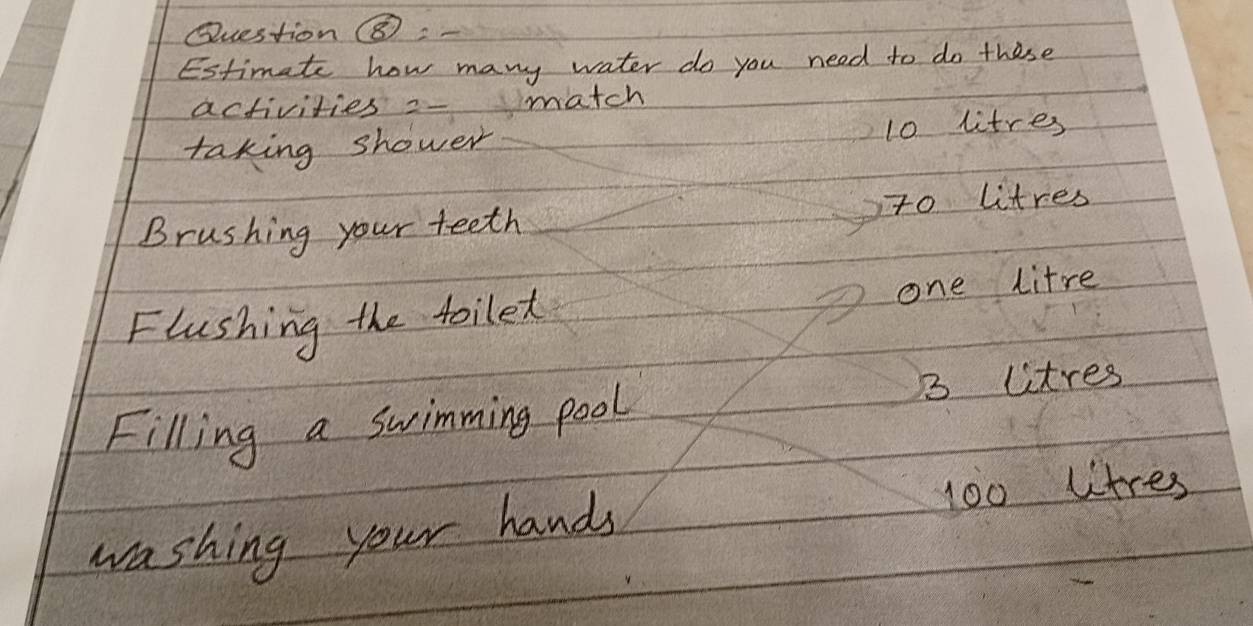 Question 8 :-
Estimate how many water do you need to do these
activities :- match
taking shower 10 litres
Brushing your teeth 70 litres
Flushing the toilet one litre
Filling a swimming pool 3 litres
washing your hands 100 litres